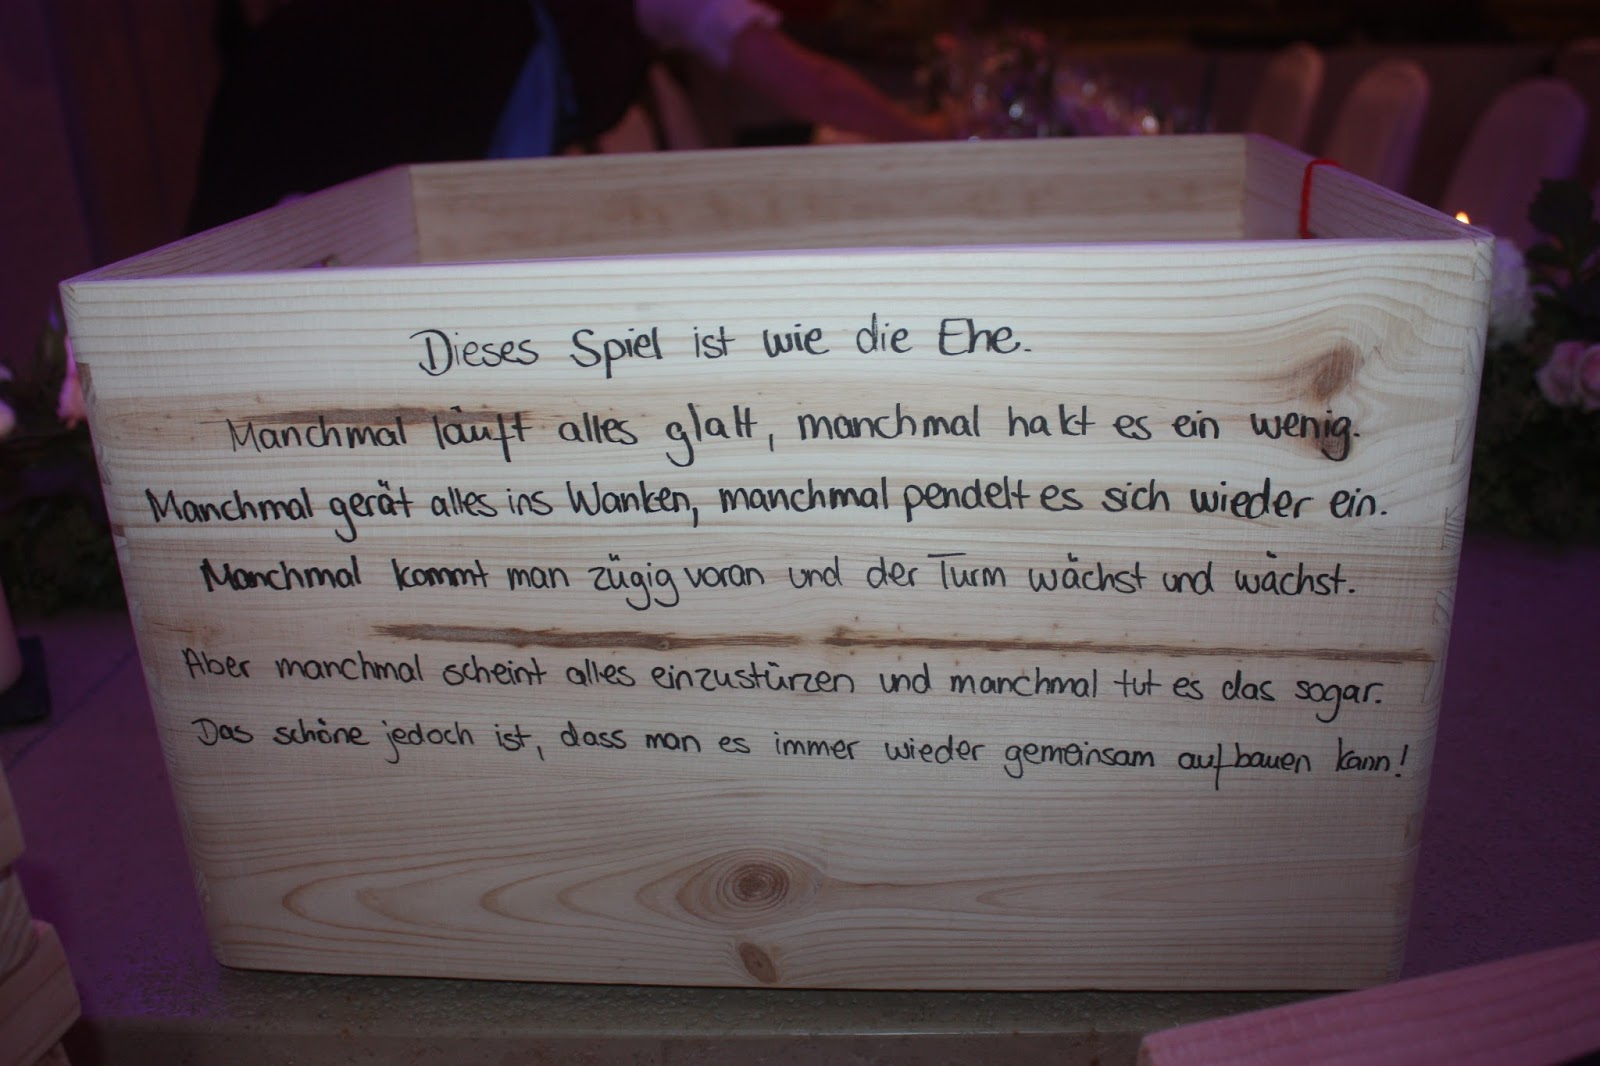 Dieses Spiel ist wie die Ehe.
Manchmal läuft alles glatt, manchmal hakt es ein wenig.
Manchmal gerät alles ins Wanken, manchmal pendelt es sich wieder ein.
Manchmal kommt man zügig voran und der Turm wächst und wächst.
Aber manchmal scheint alles einzustürzen und manchmal tut es das sogar.
Das schöne jedoch ist, dass man es immer wieder gemeinsam aufbauen kann!